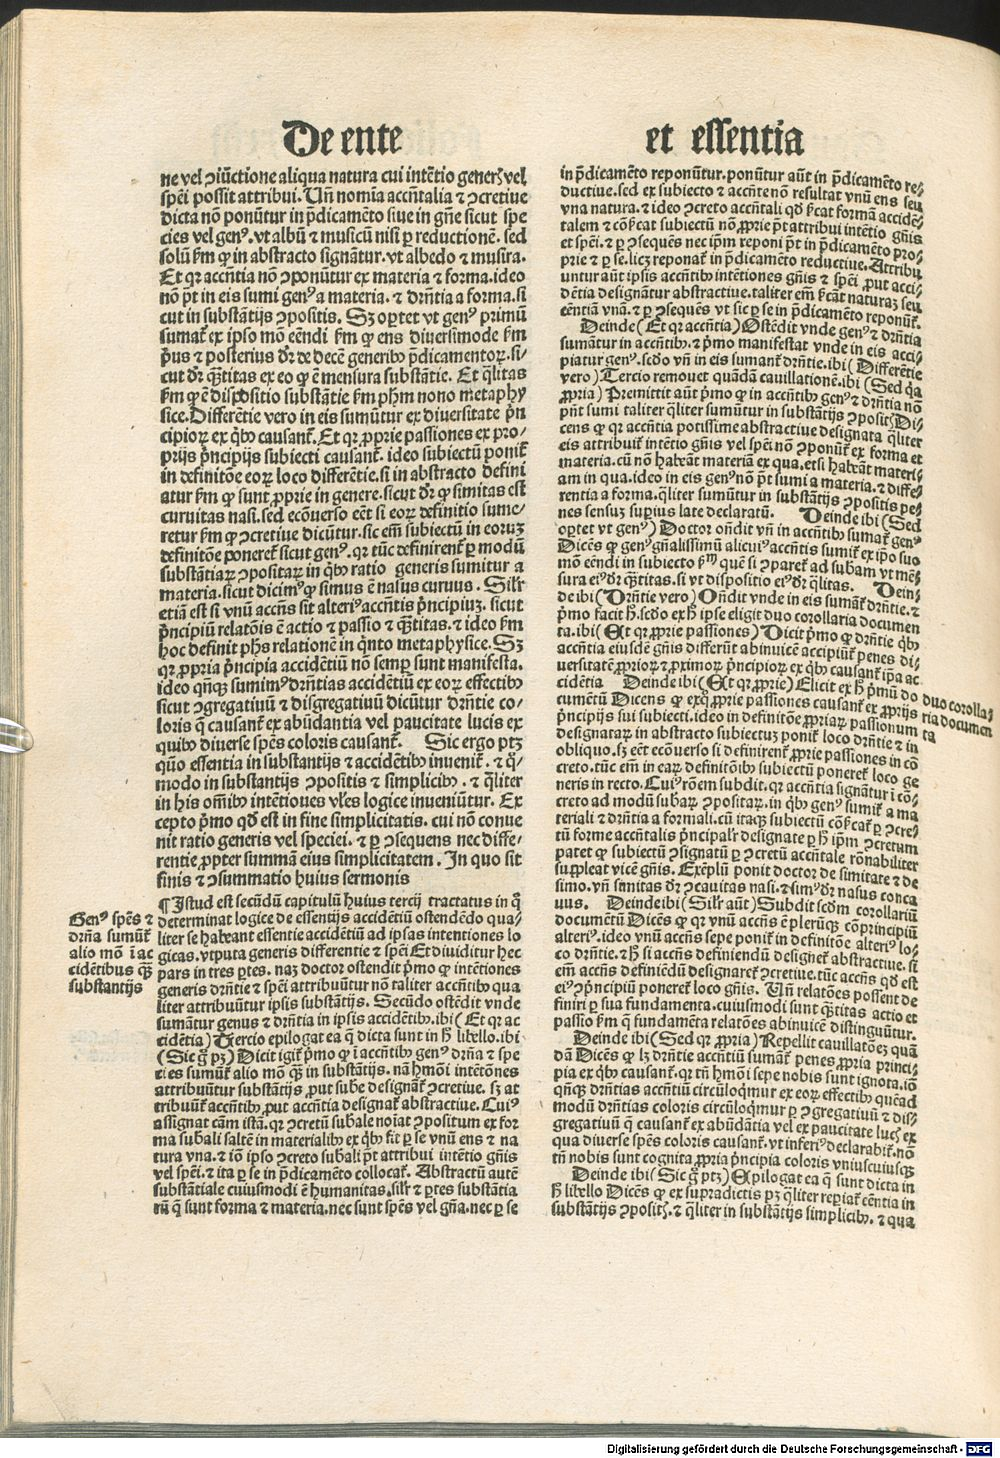 De ente
ne vel ↄiūctione aliqua natura cui intētio generꝭ vel
spēi possit attribui. Uñ nomīa accñtalia ⁊ ↄcretiue
dicta nō ponūtur in p̄dicamēto siue in gñe sicut spe
cies vel genꝰ. vt albū ⁊ musicū nisi ꝑ reductionē. sed
solū ẜm ꝙ in abstracto signāntur. vt albedo ⁊ musica.
Et qꝛ accñtia nō ↄponūtur ex materia ⁊ forma. ideo
nō p̄t in eis sumi genꝰ a materia. ⁊ dr̄ñtia a forma. si
cut in substātijs ↄpositis. Sꝫ oꝑtet vt genꝰ primū
sumat᷑ ex ipso mō eēndi ẜm ꝙ ens diuersimode ẜm
p̄us ⁊ posterius dr̄ de decē generibꝰ p̄dicamentoꝝ. si-
cut dr̄ q̄ꝫtitas ex eo ꝙ ē mensura substātie. Et q̄litas
ẜm ꝙ ē dispositio substātie ẜm ph̄m nono metaphy
sice. Differētie vero in eis sumūtur ex diuersitate p̄n
cipioꝝ ex q̄bꝰ causant᷑. Et qꝛ ꝓprie passiones ex pro-
prijs p̄ncipijs subiecti causant᷑. ideo subiectū ponit᷑
in definitōe eoꝝ loco differētie. si in abstracto defini
atur ẜm ꝙ sunt ꝓprie in genere. sicut dr̄ ꝙ simitas est
curuitas nasi. sed ecōuerso eēt si eoꝝ definitio sume-
retur ẜm ꝙ ↄcretiue dicūtur. sic em̄ subiectū in eoruꝫ
definitōe poneret᷑ sicut genꝰ. qꝛ tūc definirent᷑ ꝑ modū
substātiaꝝ ↄpositaꝝ in q̄bꝰ ratio generis sumitur a
materia. sicut dicimꝰ ꝙ simus ē nasus curuus. Silr̄
etiā est si vnū accñs sit alteriꝰ accñtis p̄ncipiuꝫ. sicut
p̄ncipiū relatōis ē actio ⁊ passio ⁊ q̄ꝫtitas. ⁊ ideo ẜm
hoc definit ph̄s relationē in q̄nto metaphysice. Sꝫ
qꝛ ꝓpria p̄ncipia accidētiū nō semꝑ sunt manifesta.
ideo qñqꝫ sumimꝰ dr̄ñtias accidētiū ex eoꝝ effectibꝰ
sicut ↄgregatiuū ⁊ disgregatiuū dicūtur dr̄ñtie co-
loris q̄ causant᷑ ex abūdantia vel paucitate lucis ex
quibꝰ diuerse spēs coloris causant᷑. Sic ergo ptꝫ
quō essentia in substantijs ⁊ accidētibꝰ inuenit᷑. ⁊ q̄-
modo in substantijs ↄpositis ⁊ simplicibꝰ. ⁊ q̄liter
in his om̄ibꝰ intētiones vl̄es logice inueniūtur. Ex
cepto p̄mo qd̄ est in fine simplicitatis. cui nō conue
nit ratio generis vel speciei. ⁊ ꝑ ↄsequens nec diffe-
rentie ꝓpter summā eius simplicitatem. In quo sit
finis ⁊ ↄsummatio huius sermonis
¶ Istud est secūdū capitulū huius tercij tractatus in q̄
determinat logice de essentijs accidētiū ostendēdo qua-
liter se habeant essentie accidētiū ad ipsas intentiones lo
gicas. vtputa generis differentie ⁊ spēi Et diuiditur hec
pars in tres ꝑtes. naꝫ doctor ostendit p̄mo ꝙ intētiones
generis dr̄ñtie ⁊ spēi attribuūtur nō taliter accñtibꝰ qua
liter attribuūtur ipsis substātijs. Secūdo ostēdit vnde
sumāntur genus ⁊ dr̄ñtia in ipsis accidētibꝰ. ibi (Et qꝛ ac
cidētia) Tercio epilogat ea q̄ dicta sunt in h̄ libello. ibi
(Sic g̊ pꝫ) Dicit igit᷑ p̄mo ꝙ ī accñtibꝰ genꝰ dr̄ña ⁊ spe
cies sumūt᷑ alio mō q̄ꝫ in substātijs. nā hmōi intētōnes
attribuūtur substātijs ꝓut sub̄e designāt᷑ ↄcretiue. sꝫ at
tribuūt᷑ accñtibꝰ ꝓut accñtia designāt᷑ abstractiue. Cuiꝰ
assignat cām istā. qꝛ ↄcretū sub̄ale noīat ↄpositum ex for
ma sub̄ali saltē in materialibꝰ ex q̄bꝰ fit ꝑ se vnū ens ⁊ na
tura vna. ⁊ iō ipso ↄcreto sub̄ali p̄t attribui intētio gñis
vel spēi. ⁊ ita ꝑ se in p̄dicamēto collocat᷑. Abstractū autē
substātiale cuiusmodi ē humanitas. silr̄ ⁊ ꝑtes substātia
rū q̄ sunt forma ⁊ materia. nec sunt spēs vel gña. nec ꝑ se
Genꝰ spēs ⁊
dr̄ña sumūt᷑
alio mō ī ac
cidētibus q̄ꝫ
substantijs
et essentia
in p̄dicamēto reponūtur. ponūtur aūt in p̄dicamēto re-
ductiue. sed ex subiecto ⁊ accñte nō resultat vnū ens seu
vna natura. ⁊ ideo ↄcreto accñtali qd̄ ẜcat formā accidē-
talem ⁊ cōẜcat subiectū nō ꝓprie p̄t attribui intētio gñis
et spēi. ⁊ ꝑ ↄsequēs nec ip̄m reponi p̄t in p̄dicamēto pro-
prie ⁊ ꝑ se. licꝫ reponat᷑ in p̄dicamēto reductiue. Attribu
untur aūt ipsis accñtibꝰ intētiones gñis ⁊ spēi ꝓut acci-
dētia designāntur abstractiue. taliter em̄ ẜcāt naturaꝫ seu
eēntiā vnā. ⁊ ꝑ ↄsequēs vt sic ꝑ se in p̄dicamēto reponūt᷑.
Deinde (Et qꝛ accñtia) Ostēdit vnde genꝰ ⁊ dr̄ñtia
sumāntur in accñtibꝰ. ⁊ p̄mo manifestat vnde in eis acci-
piatur genꝰ. sed̄o vñ in eis sumant᷑ dr̄ñtie. ibi (Differētie
vero) Tercio remouet quādā cauillationē. ibi (Sed qꝛ
ꝓpria) Premittit aūt p̄mo ꝙ in accñtibꝰ genꝰ ⁊ dr̄ñtia nō
pn̄t sumi taliter q̄liter sumūtur in substātijs ↄpositꝭ Di-
cens ꝙ qꝛ accñtia potissime abstractiue designata q̄liter
eis attribuit᷑ intētio gñis vel spēi nō ↄponūt᷑ ex forma et
materia. cū nō habeāt materiā ex qua. etsi habeāt materi-
am in qua. ideo in eis genꝰ nō p̄t sumi a materia. ⁊ diffe-
rentia a forma. q̄liter sumūtur in substātijs ↄpositis pe-
nes sensuꝫ suꝑius late declaratū. Deinde ibi (Sed
oꝑtet vt genꝰ) Doctor oñdit vñ in accñtibꝰ sumat᷑ genꝰ
Dicēs ꝙ genꝰ gñalissimū alicuiꝰ accñtis sumit᷑ ex ip̄o suo
mō eēndi in subiecto ẜm quē si ↄparet᷑ ad sub̄am vt mē-
sura eiꝰ dr̄ q̄ꝫtitas. si vt dispositio eiꝰ dr̄ q̄litas. Dein-
de ibi (Dr̄ñtie vero) Oñdit vnde in eis sumāt᷑ dr̄ñtie. ⁊
p̄mo facit h̄. sed̄o ex h̄ ipse eligit duo corollaria documen
ta. ibi (Et qꝛ ꝓprie passiones) Dicit p̄mo ꝙ dr̄ñtie q̄bꝰ
accñtia eiusdē gñis differūt abinuicē accipiūt᷑ penes di-
uersitatē ꝓprioꝝ ⁊ ꝓximoꝝ p̄ncipioꝝ ex q̄bꝰ causant᷑ ip̄a ac
cidētia Deinde ibi (Et qꝛ ꝓprie) Elicit ex h̄ p̄mū do
cumētū Dicens ꝙ exq̄ ꝓprie passiones causant᷑ ex ꝓprijs
p̄ncipijs sui subiecti. ideo in definitōe ꝓpriaꝝ passionum
designataꝝ in abstracto subiectuꝫ ponit᷑ loco dr̄ñtie ⁊ in
obliquo. sꝫ eēt ecōuerso si definirent᷑ ꝓprie passiones in cō
creto. tūc em̄ in eaꝝ definitōibꝰ subiectū poneret᷑ loco ge
neris in recto. Cuiꝰ rōem subdit. qꝛ accñtia signātur ī cō-
creto ad modū sub̄aꝝ ↄpositaꝝ. in q̄bꝰ genꝰ sumit᷑ a ma
teriali ⁊ dr̄ñtia a formali. cū itaqꝫ subiectū cōẜcat᷑ ꝑ ↄcre-
tū forme accñtalis p̄ncipalr̄ designate ꝑ h̄ ip̄m ↄcretum
patet ꝙ subiectū ↄsignatū ꝑ ↄcretū accñtale rōnabiliter
suppleat vicē gñis. Exēplū ponit doctor de simitate ⁊ de
simo. vñ simitas dr̄ ↄcauitas nasi. ⁊ simꝰ dr̄ nasus conca
uus. Deinde ibi (Silr̄ aūt) Subdit scd̄m corollariū
documētū Dicēs ꝙ qꝛ vnū accñs ē plerūqꝫ cōprincipiū
alteriꝰ. ideo vnū accñs sepe ponit᷑ in definitōe alteriꝰ lo-
co dr̄ñtie. ⁊ h̄ si accñs definiendū designet᷑ abstractiue. si
em̄ accñs definiēdū designaret᷑ ↄcretiue. tūc accñs qd̄ est
eiꝰ ↄp̄ncipiū poneret᷑ loco gñis. Uñ relatōes possent de
finiri ꝑ sua fundamenta. cuiusmodi sunt q̄ꝫtitas actio et
passio ẜm q̄ fundamēta relatōes abinuicē distinguūtur.
Deinde ibi (Sed qꝛ ꝓpria) Repellit cauillatōeꝫ quā
dā Dicēs ꝙ lꝫ dr̄ñtie accñtiū sumāt᷑ penes ꝓpria princi-
pia ex q̄bꝰ causant᷑. qꝛ tñ hmōi sepe nobis sunt ignota. iō
qñqꝫ dr̄ñtias accñtiū circūloq̄mur ex eoꝝ effectibꝰ quēad
modū dr̄ñtias coloris circūloq̄mur ꝑ ↄgregatiuū ⁊ dis-
gregatiuū q̄ causant᷑ ex abūdātia vel ex paucitate lucꝭ ex
qua diuerse spēs coloris causant᷑. vt inferiꝰ declarabit᷑. nō
tñ nobis sunt cognita ꝓpria p̄ncipia coloris vniuscuiusqꝫ
Deinde ibi (Sic g̊ ptꝫ) Epilogat ea q̄ sunt dicta in
h̄ libello Dicēs ꝙ ex supradictis pꝫ q̄liter reꝑiat᷑ eēntia in
substātijs ↄpositꝭ. ⁊ q̄liter in substātijs simplicibꝰ. ⁊ qua
duo corolla-
ria documen
ta
Digitalisierung gefördert durch die Deutsche Forschungsgemeinschaft - DFG